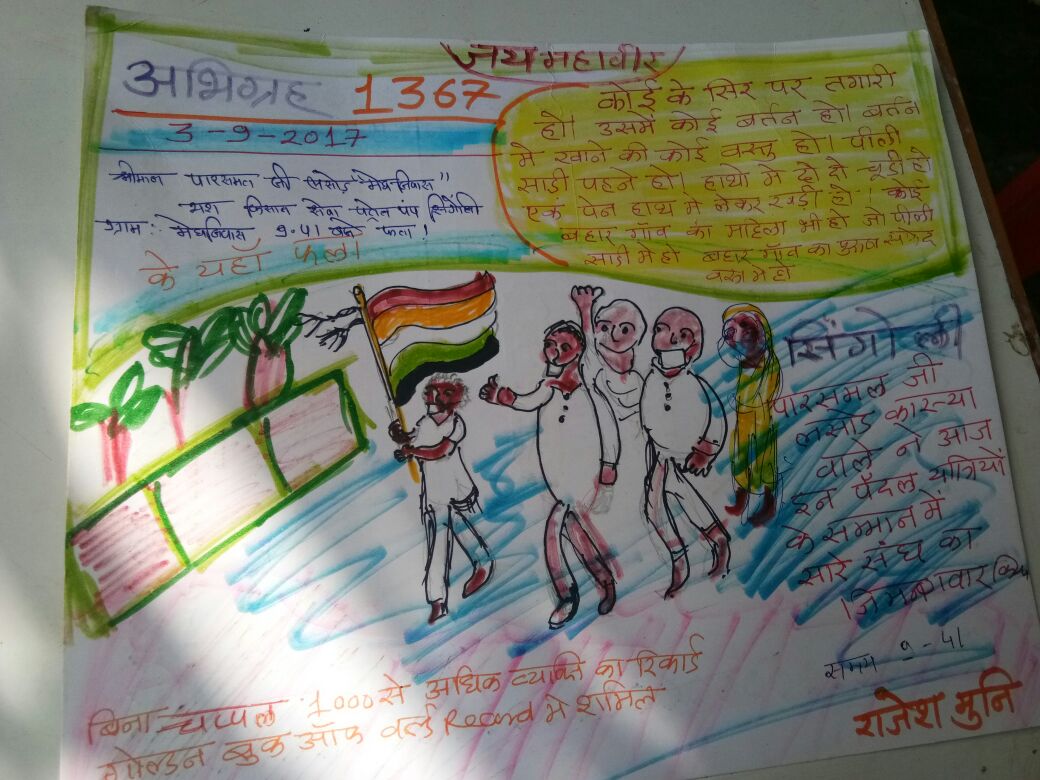 जय महावीर
अभिग्रह 1367
3-9-2017
श्रीमान पारसमल जी लसोड "मेघनिवास"
किसान सेवा पंप सिंगोली
ग्राम: मेघनिवास 9-41 बजे फला!
के यहाँ फला।
कोई के सिर पर तगारी
हो। उसमें कोई बर्तन हो। बर्तन
मे खाने की कोई वस्तु हो। पीली
साड़ी पहने हो। हाथो मे दो दो चूड़ी हो
एक पेन हाथ मे लेकर खड़ी हो। कोई
बहार गाँव का महिला भी हो जो पीली
साड़ी मे हो बहार गाँव का श्रावक सफेद
वस्त्र मे हो
सिंगोली
पारसमल जी
लसोड कास्या
वाले ने आज
इन पैदल यात्रियों
के सम्मान में
सारे संघ का
समय 9-41
बिना चप्पल 1000 से अधिक व्यक्ति का रिकार्ड
गोल्डन बुक ऑफ वर्ल्ड Record मे शामिल
राजेश मुनि